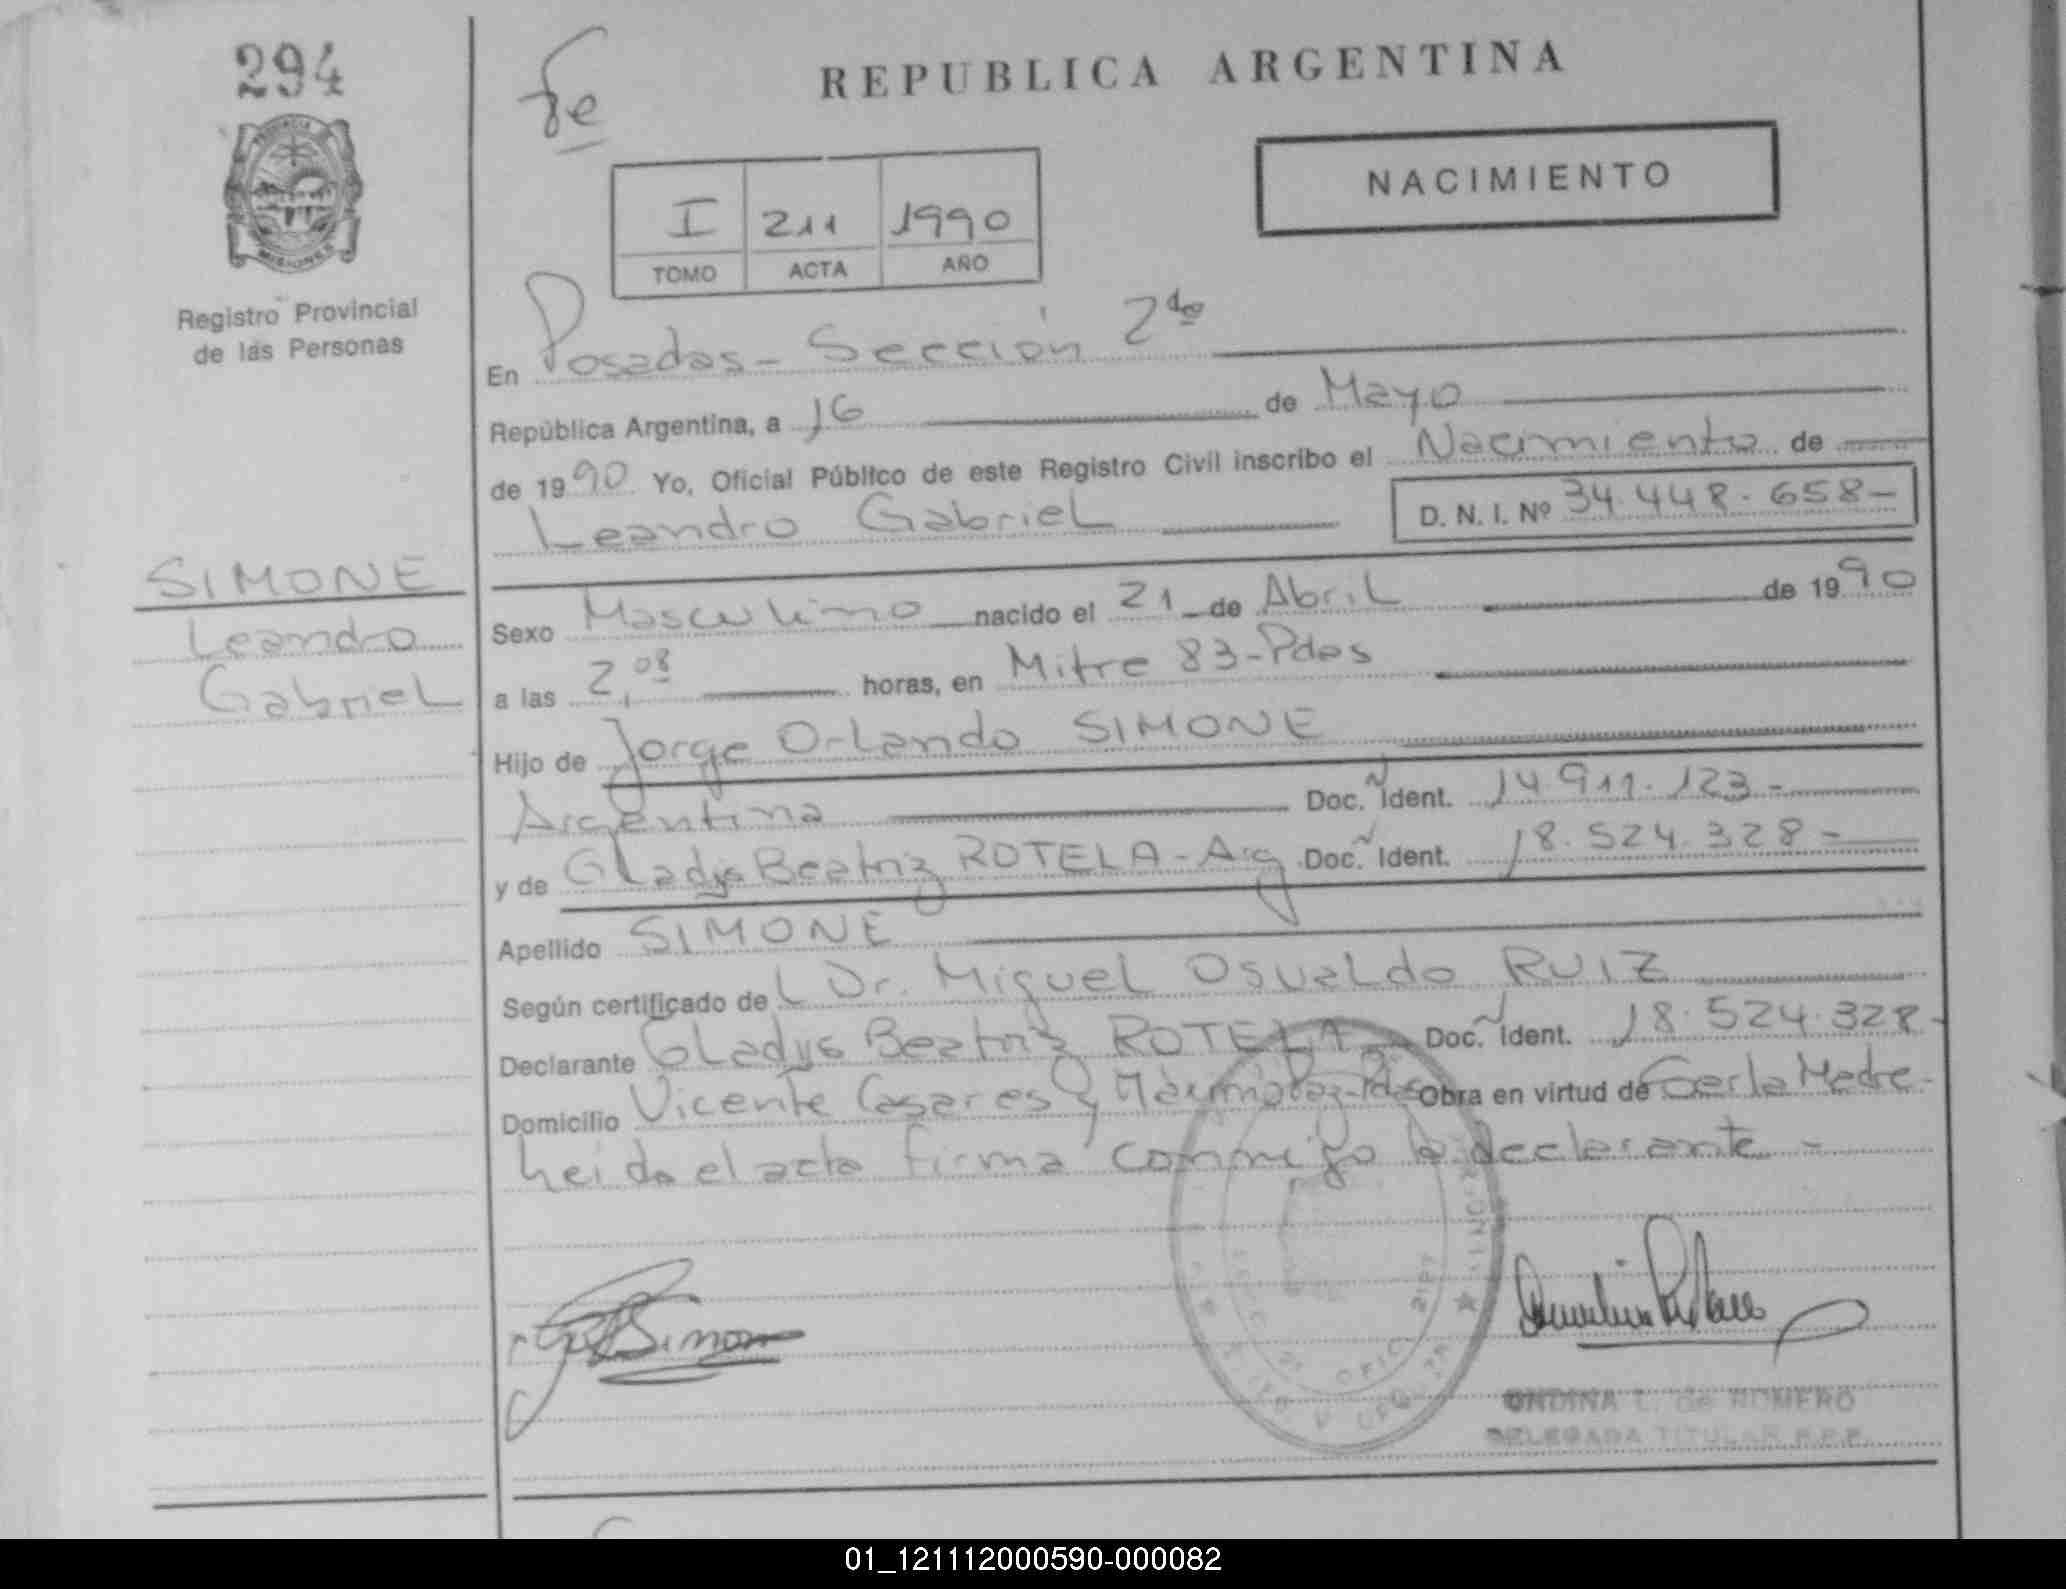 294
Fe
REPUBLICA ARGENTINA
NACIMIENTO
PROVINCIA
MISIONES
I 211 1990
TOMO ACTA AÑO
Registro Provincial
de las Personas
En Posadas - Sección 2da
República Argentina, a 16 de Mayo
de 1990 Yo, Oficial Público de este Registro Civil inscribo el Nacimiento de
Leandro Gabriel D. N. I. Nº 34.448.658-
SIMONE
Leandro
Gabriel
Sexo Masculino nacido el 21 de Abril de 1990
a las 2,08 horas, en Mitre 83-Pdas
Hijo de Jorge Orlando SIMONE
Argentina Doc. Ident. 14.911.123-
y de Gladys Beatriz ROTELA - Arg Doc. Ident. 18.524.328-
Apellido SIMONE
Según certificado del Dr. Miguel Osvaldo RUIZ
Declarante Gladys Beatriz ROTELA Doc. Ident. 18.524.328-
Domicilio Vicente Casares y Obra en virtud de Madre-
Leida el acta firma conmigo la declarante -
ONDINA L. de ROMERO
DELEGADA TITULAR R.P.P.
01_121112000590-000082